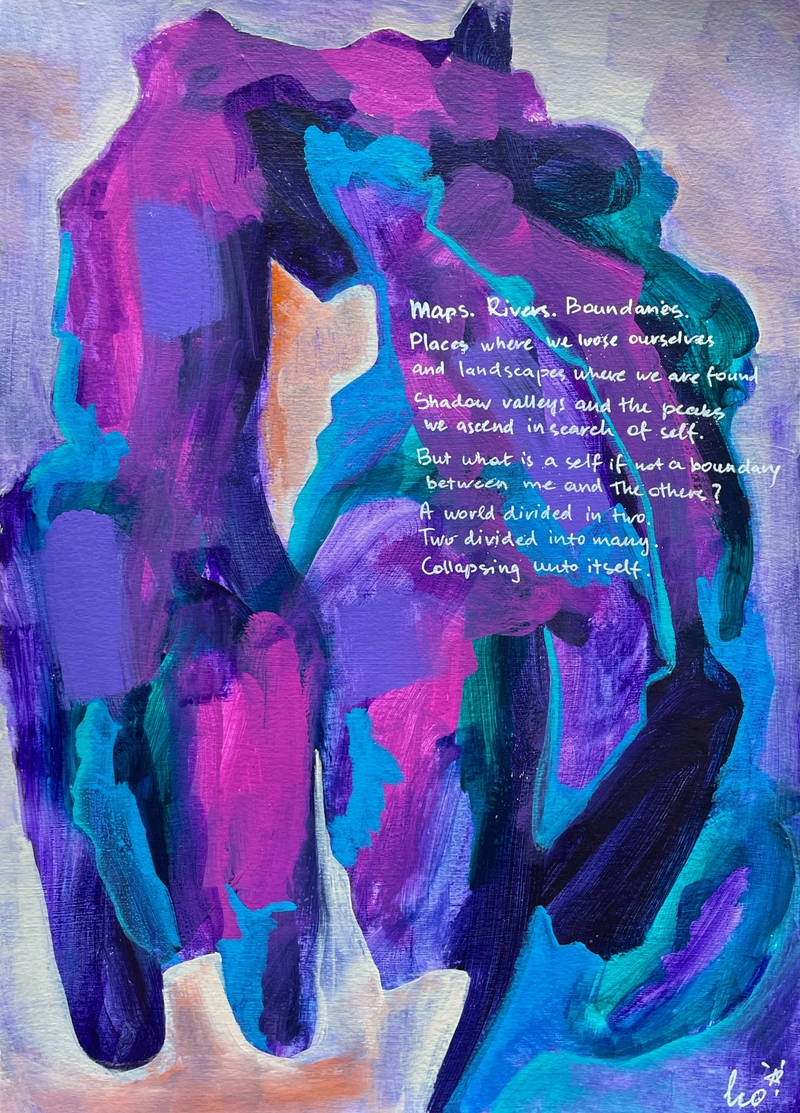 Maps. Rivers. Boundaries.
Places where we loose ourselves
and landscapes where we are found
Shadow valleys and the peaks
we ascend in search of self.
But what is a self if not a boundary
between me and the others?
A world divided in two.
Two divided into many.
Collapsing unto itself.